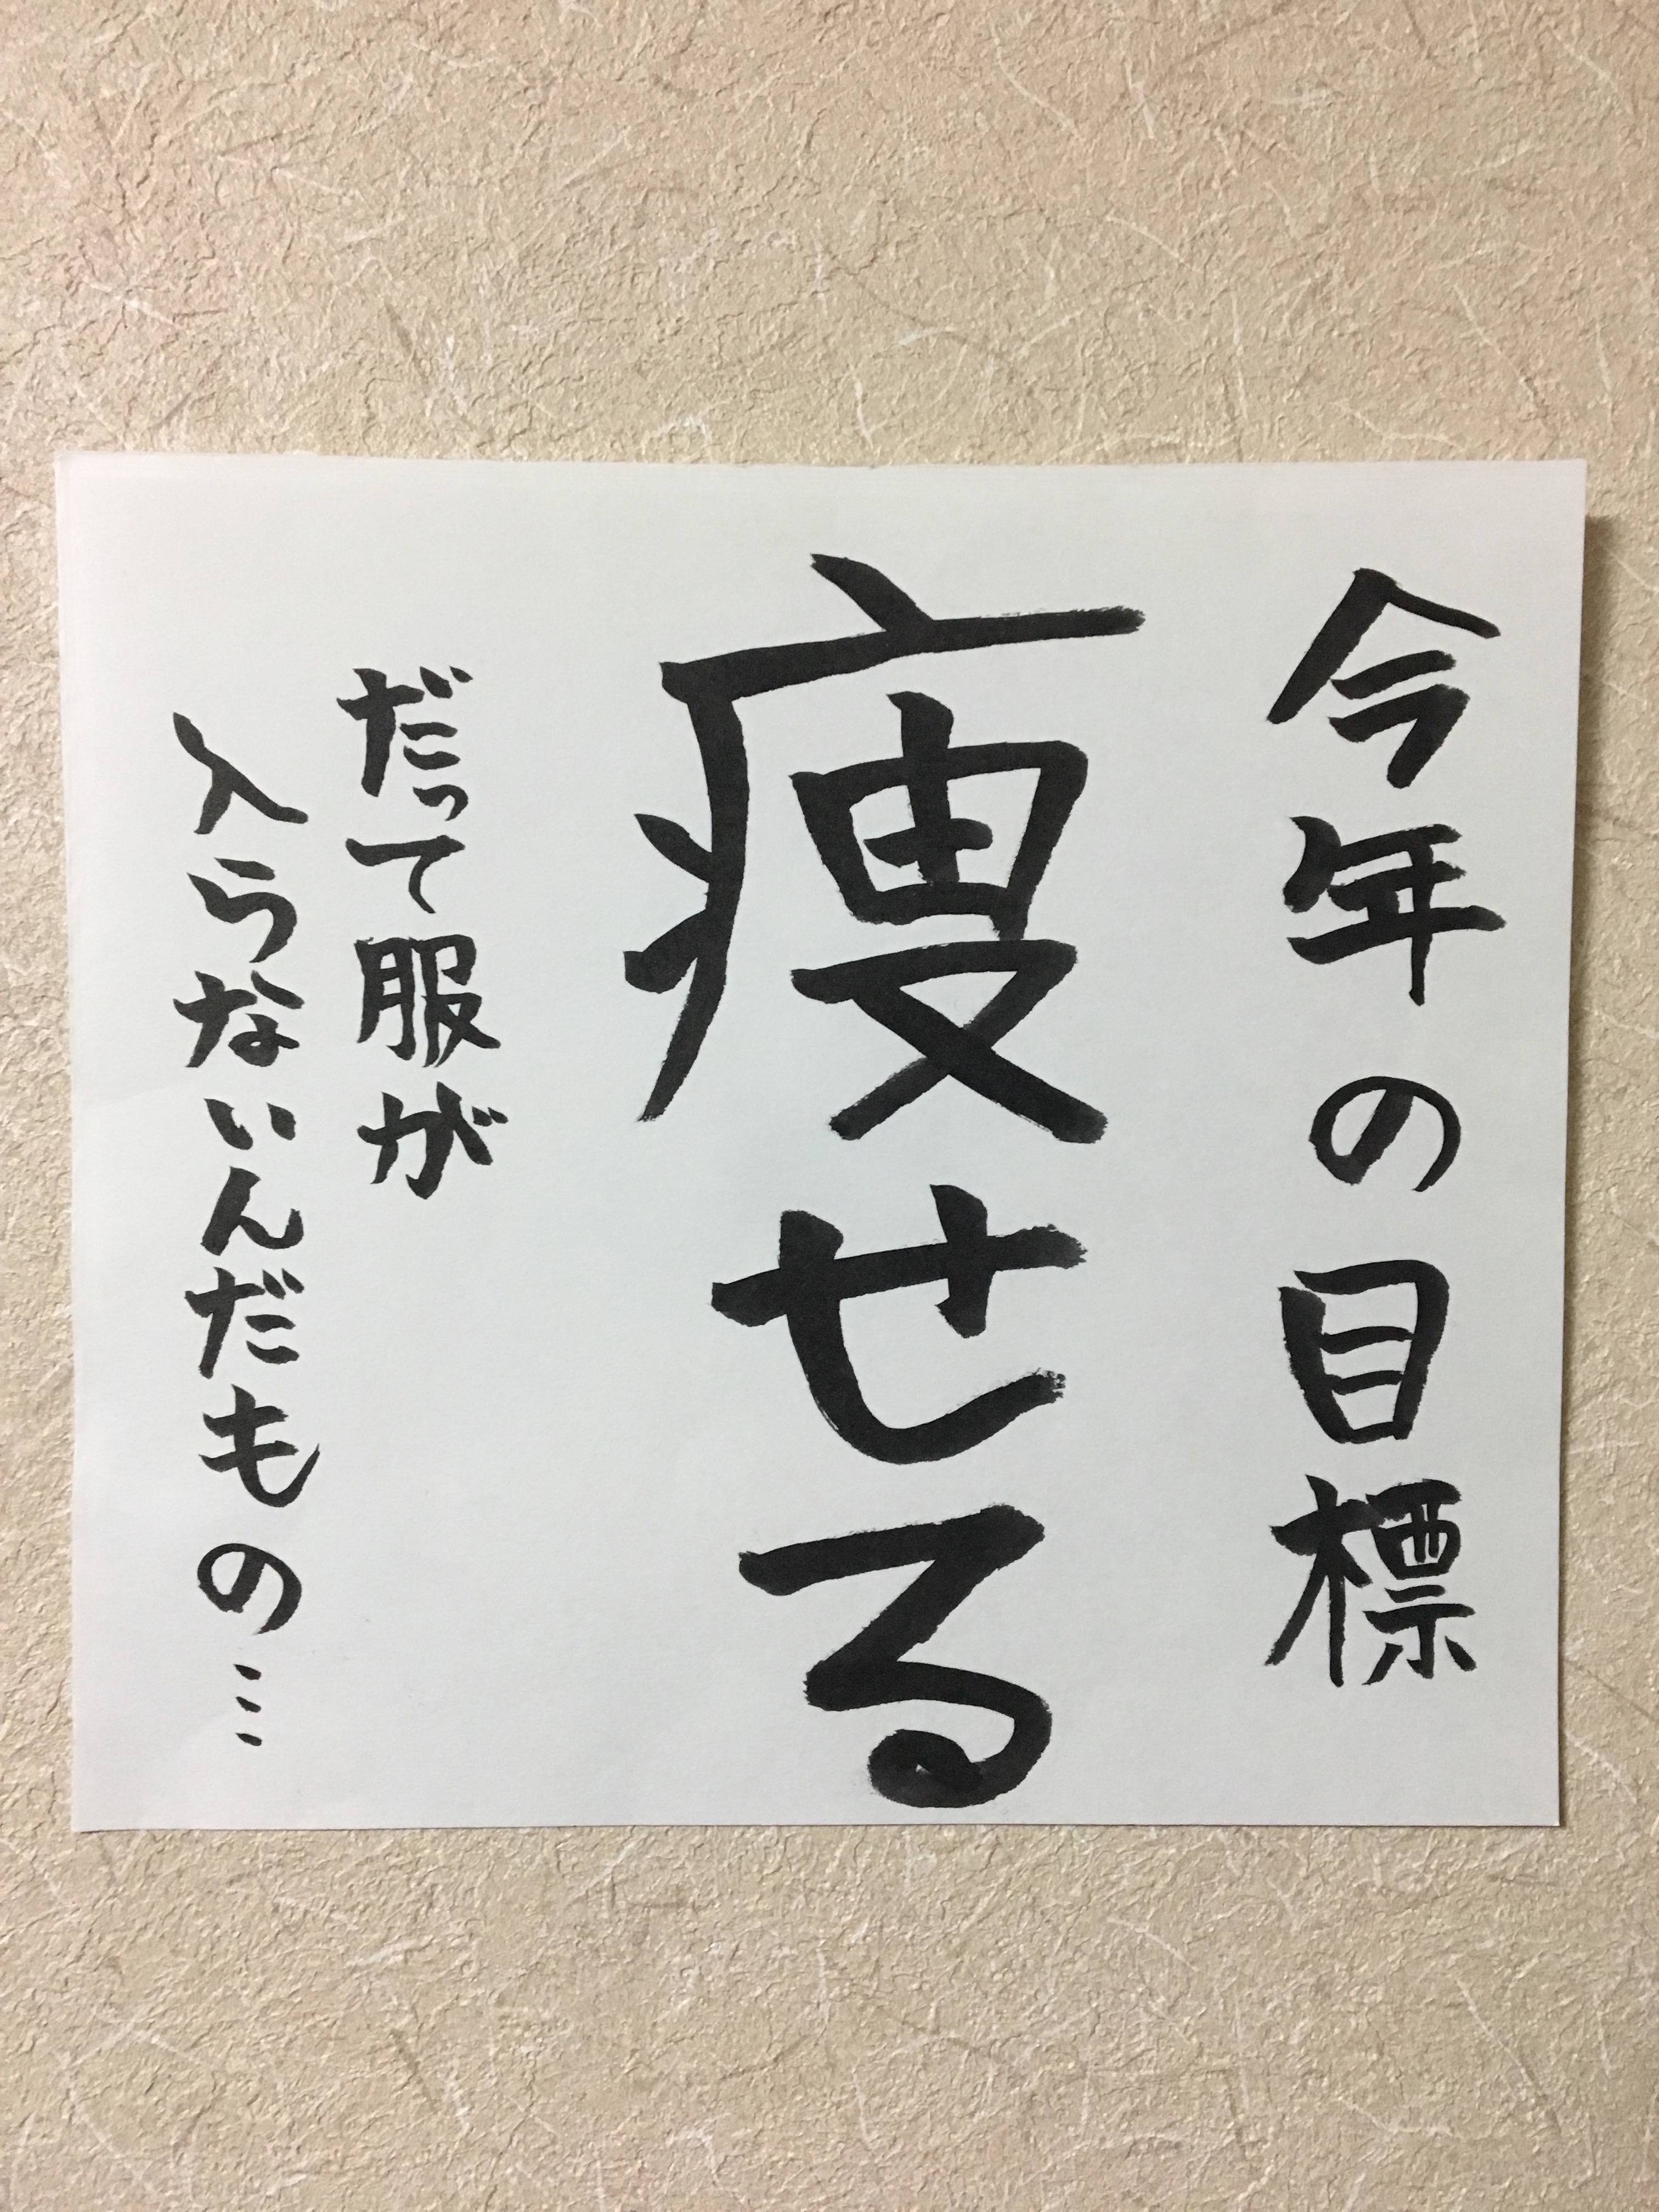 今年の目標
痩せる
だって服が
入らないんだもの…